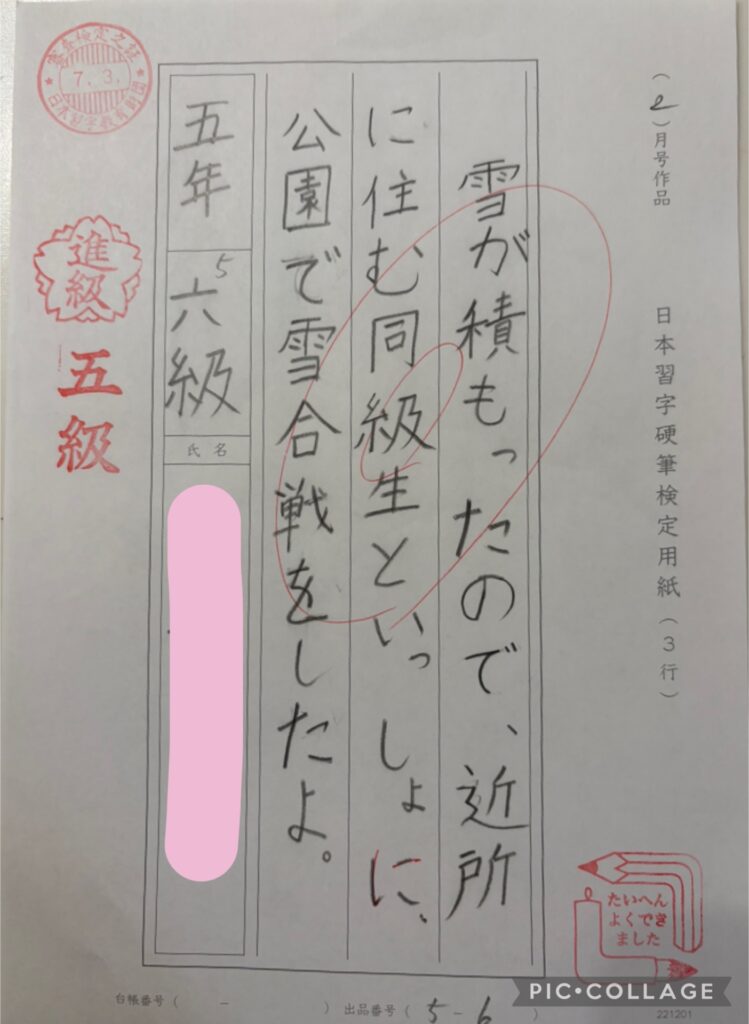 （2）月号作品　日本習字硬筆検定用紙（3行）
雪が積もったので、近所
に住む同級生といっしょに、
公園で雪合戦をしたよ。
五年
5
六級
氏名
審査検定之証
7.3.
日本習字教育財団
進級
五級
たいへん
よくでき
ました
台帳番号（　－　）
出品番号（5－6）
221201
PIC•COLLAGE